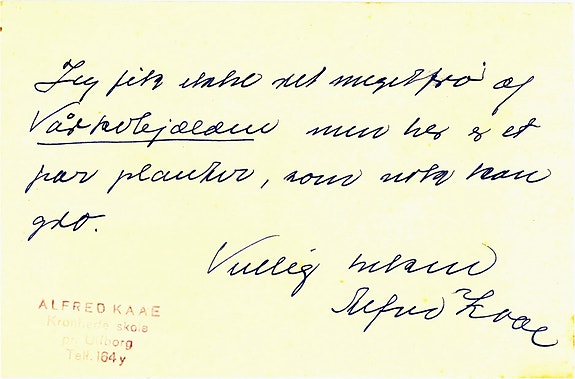 Jeg fik ikke det meget frø af
Vårkobjælden men her er et
par planter, som nok kan
gro.
Venlig hilsen
Alfred Kaae
ALFRED KAAE
Kronhede skole
pr. Ulfborg
Telf. 164 y